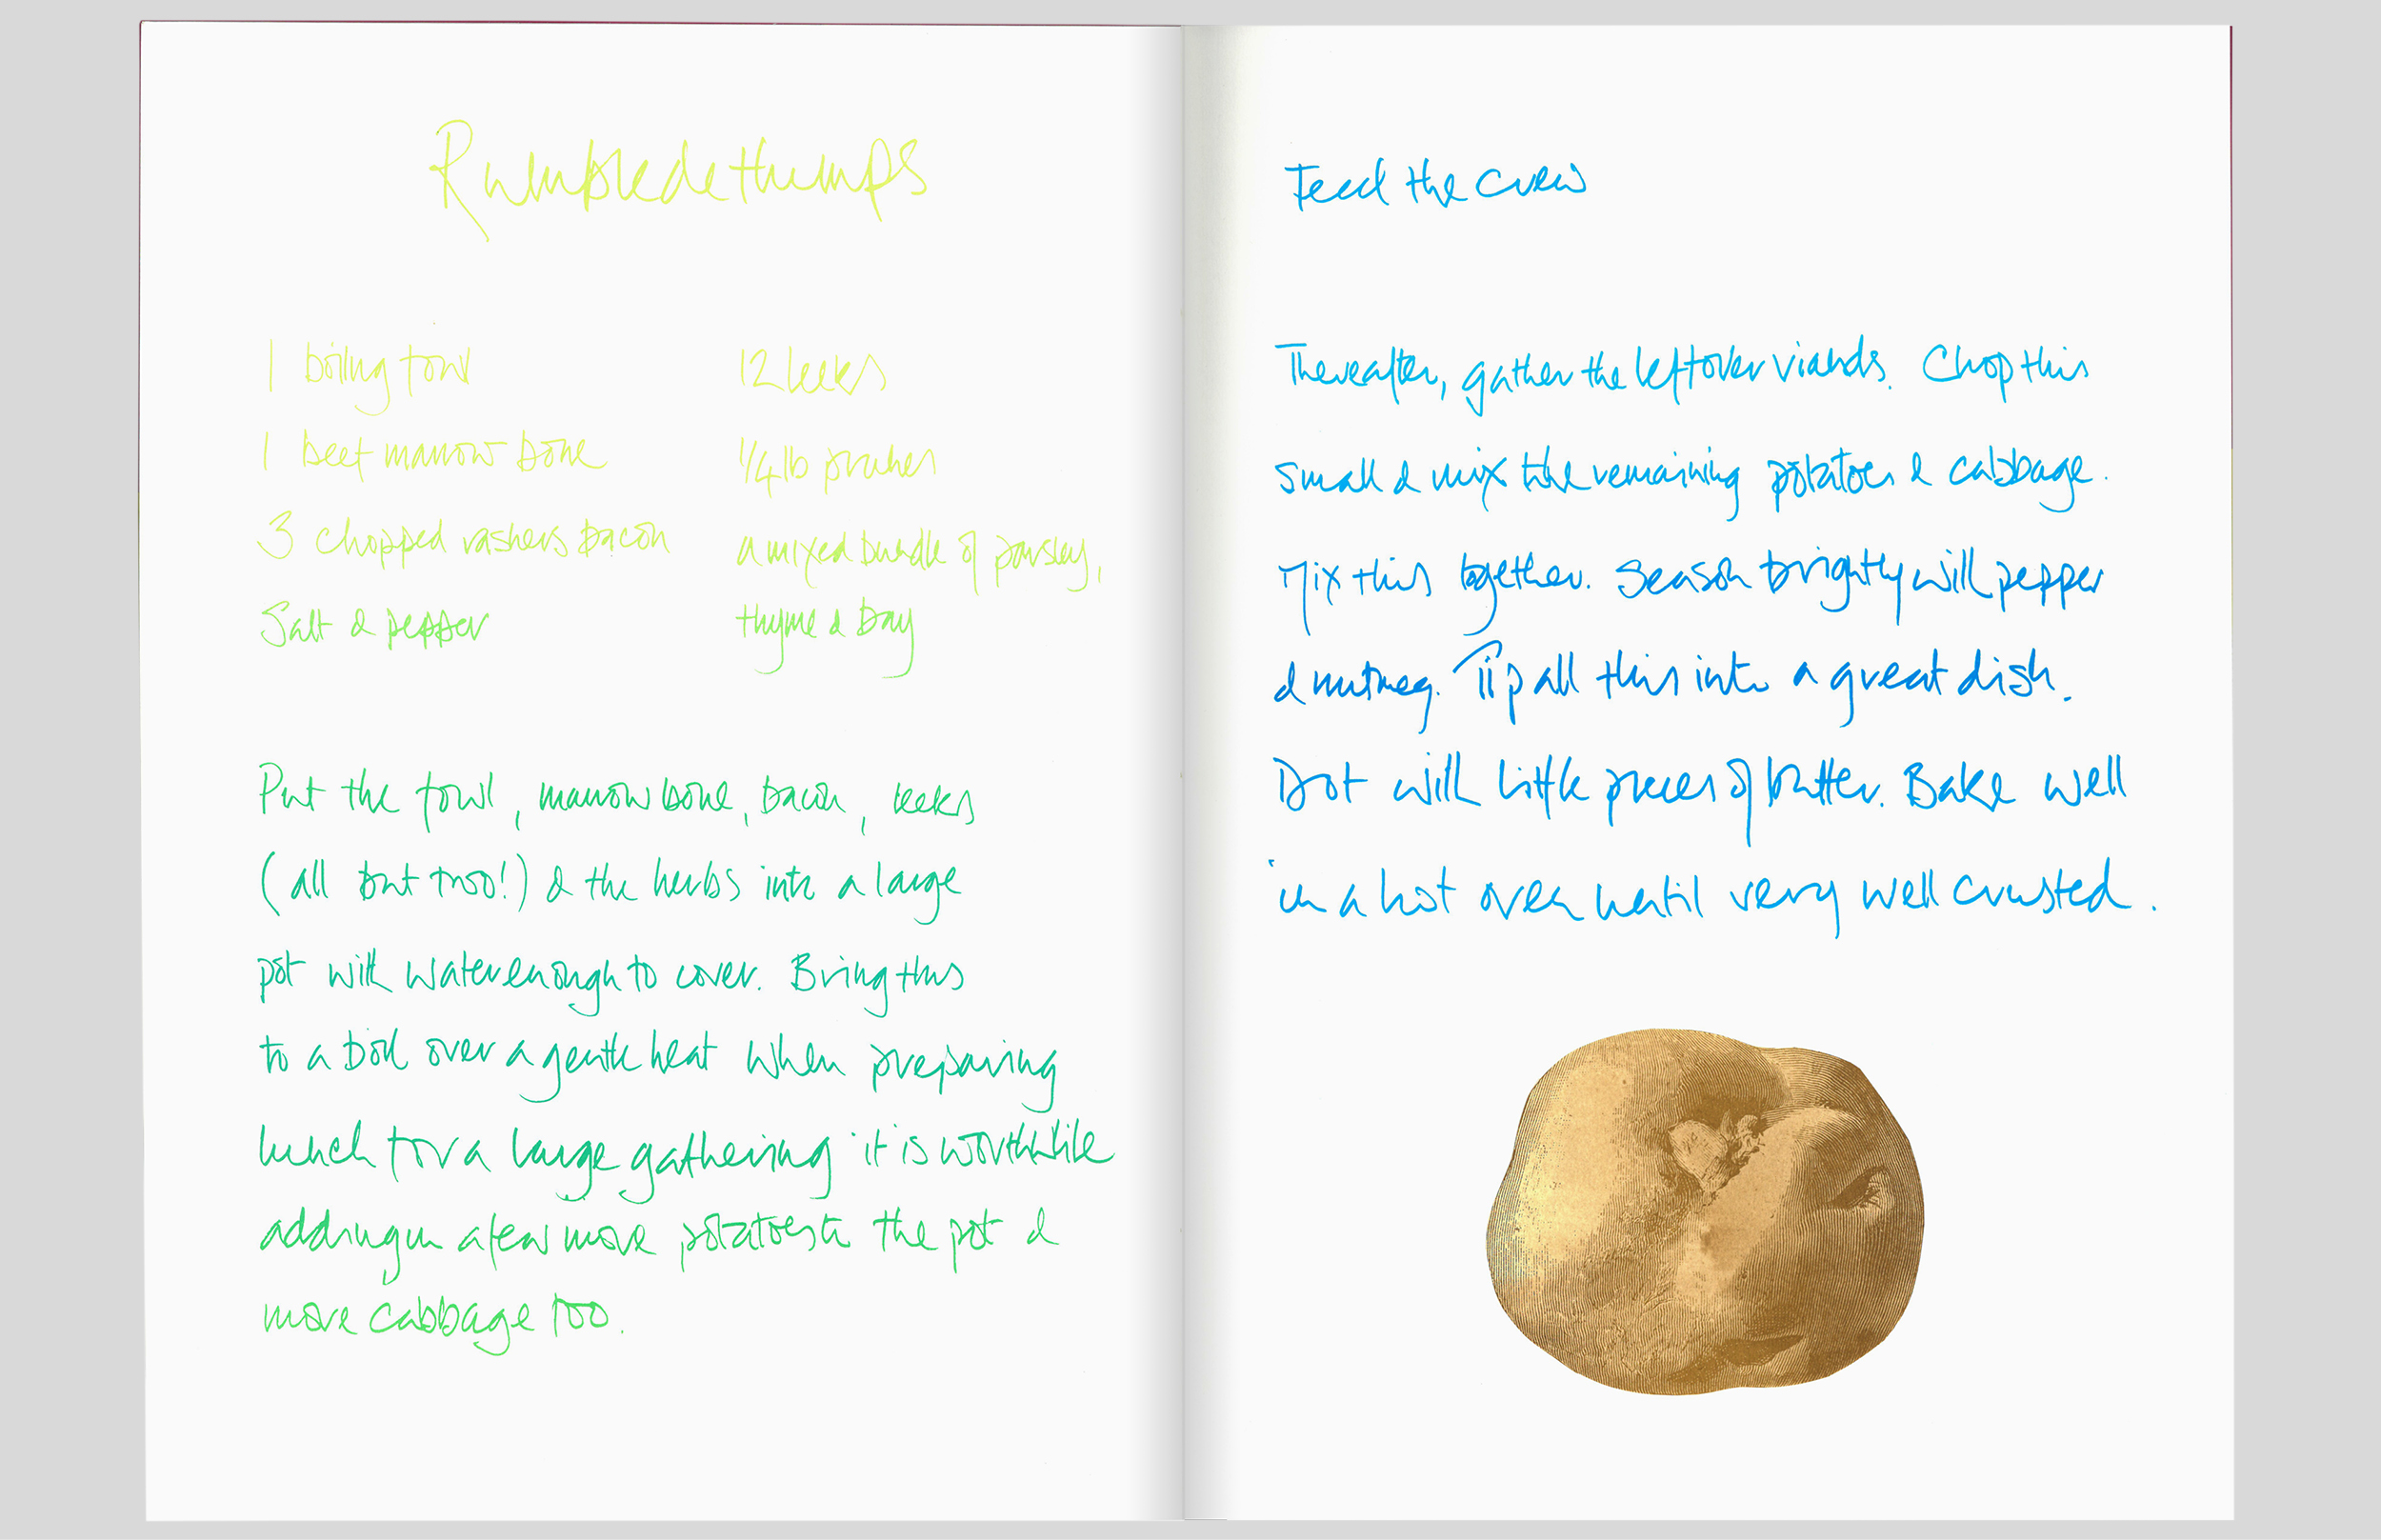 Rumbledethumps
1 boiling fowl
1 beef marrow bone
3 chopped rashers bacon
Salt & pepper
12 leeks
1/4 lb prunes
a mixed bundle of parsley,
thyme & bay
Put the fowl, marrow bone, bacon, leeks
(all but two!) & the herbs into a large
pot with water enough to cover. Bring this
to a boil over a gentle heat when preparing
lunch for a large gathering it is worthwhile
adding in a few more potatoes to the pot &
more cabbage too.
Feed the crew
Thereafter, gather the leftover viands. Chop this
small & mix the remaining potatoes & cabbage.
Mix this together. Season brightly with pepper
& nutmeg. Tip all this into a great dish.
Dot with little pieces of butter. Bake well
in a hot oven until very well crusted.